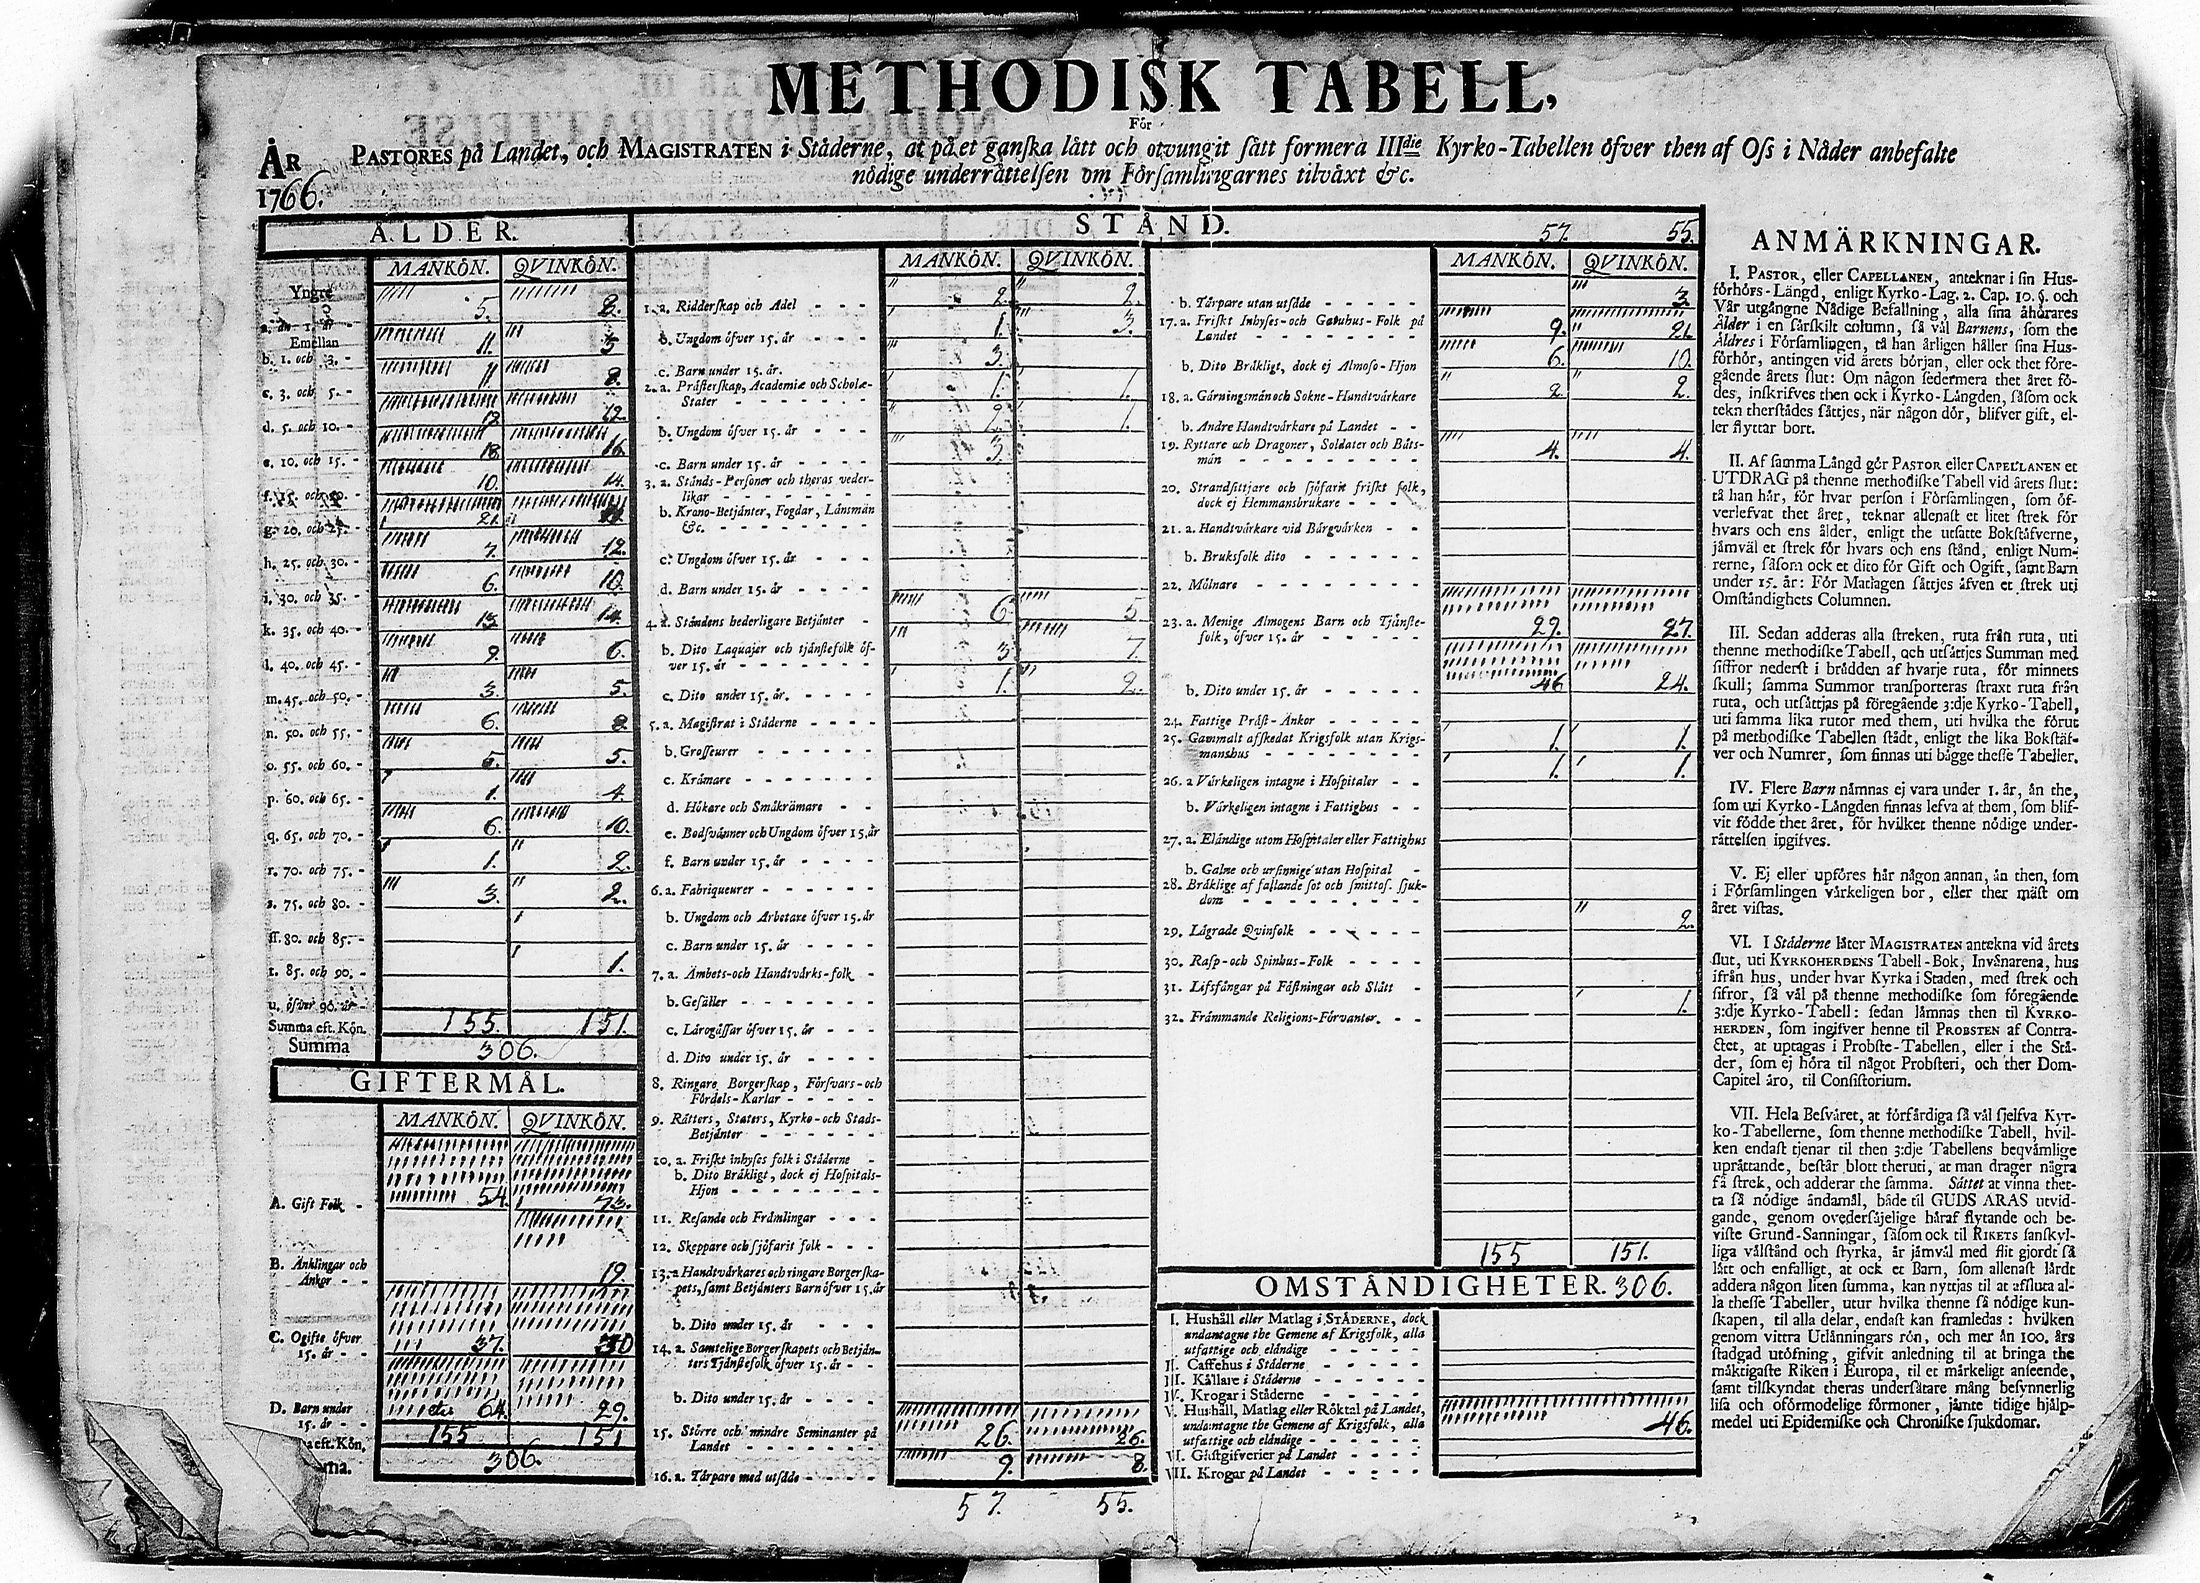 METHODISK TABELL,
För
ÅR PASTORES på Landet, och MAGISTRATEN i Städerne, at på et ganſka lått och otvungit ſått formera IIIdie Kyrko-Tabellen öfver then af Oſs i Nåder anbefalte
1766. nödige underråttelſen om Förſamlingarnes tilväxt &c.
ÅLDER.
MANKÖN. QVINKÖN.
Yngre
5. 8.
a. än 1. år -
Emellan
11. 3
b. 1. och 3. -
11. 8.
c. 3. och 5. -
19. 12.
d. 5. och 10. -
18. 16.
e. 10. och 15. -
10. 14.
f. 15. och 20. -
21.
g. 20. och 25. -
7. 12.
h. 25. och 30. -
6. 10.
i. 30. och 35. -
13. 14.
k. 35. och 40. -
9. 6.
l. 40. och 45. -
3. 5.
m. 45. och 50. -
6. 8
n. 50. och 55. -
5.
o. 55. och 60. -
1. 4.
p. 60. och 65. -
6. 10.
q. 65. och 70. -
1. 2.
r. 70. och 75. -
3. 2.
s. 75. och 80. -
ſſ. 80. och 85. -
1.
t. 85. och 90. -
u. öfver 90. år -
Summa eft. Kön. 155. 151.
Summa 306.
GIFTERMÅL.
MANKÖN. QVINKÖN.
A. Gift Folk - 54. 73.
B. Änklingar och
Änkor - - 19.
C. Ogifte öfver 37. 30
15. år - -
D. Barn under 64. 29.
15. år - -
eft. Kön, 155 151
ma. 306.
STÅND. 57. 55.
MANKÖN. QVINKÖN.
1. a. Ridderſkap och Adel - - - 2. 2.
b. Ungdom öfver 15. år - - - 1. 3.
c. Barn under 15. år. 3.
2. a. Präſterſkap, Academiæ och Scholæ-
Stater - - - - - - - 1. 1.
b. Ungdom öfver 15. år - - - 2. 1.
c. Barn under 15. år - - - - 3.
3. a. Stånds-Perſoner och theras veder-
likar - - - - - - - -
b. Krono-Betjänter, Fogdar, Länsmän
&c. - - - - - - - -
c. Ungdom öfver 15. år - - - -
d. Barn under 15. år - - - -
4. a. Ståndens hederligare Betjänter - 6 5
b. Dito Laquajer och tjänſtefolk öf-
ver 15. år - - - - - - - 3 7.
c. Dito under 15. år. - - - - 1. 2.
5. a. Magiſtrat i Städerne - - - -
b. Groſſeurer - - - - - -
c. Krämare - - - - - - -
d. Hökare och Småkrämare - -
e. Bodſvänner och Ungdom öfver 15. år
f. Barn under 15. år - - - -
6. a. Fabriqueurer - - - - - -
b. Ungdom och Arbetare öfver 15. år
c. Barn under 15. år - - - -
7. a. Ämbets-och Handtvårks-folk -
b. Geſäller - - - - - - -
c. Lärogåſſar öfver 15. år - - -
d. Dito under 15. år - - - -
8. Ringare Borgerſkap, Förſvars-och
Fördels-Karlar - - - - -
9. Rätters, Staters, Kyrko-och Stads-
Betjänter - - - - - -
10. a. Friſkt inhyſes folk i Städerne -
b. Dito Bräkligt, dock ej Hoſpitals-
Hjon - - - - - - - -
11. Reſande och Främlingar - - -
12. Skeppare och ſjöfarit folk - - -
13. a Handtvårkares och ringare Borgerſka-
pets, ſamt Betjänters Barn öfver 15. år
b. Dito under 15. år - - - -
14. a. Samtelige Borgerſkapets och Betjän-
ters Tjänſtefolk öfver 15. år - - -
b. Dito under 15. år - - - -
15. Större och mindre Seminanter på
Landet - - - - - - - 26. 26.
16. a. Torpare med utſäde - - - - 9. 8.
57. 55.
MANKÖN. QVINKÖN.
b. Torpare utan utſäde - - - - - 3.
17. a. Friſkt Inhyſes-och Gatuhus-Folk på
Landet - - - - - - - - 9. 21.
b. Dito Bräkligt, dock ej Almoſo-Hjon 6. 10.
18. a. Gärningsmän och Sokne-Handtvårkare 2. 2.
b. Andre Handtvårkare på Landet - -
19. Ryttare och Dragoner, Soldater och Båts-
män - - - - - - - - - 4. 4.
20. Strandſittjare och ſjöfarit friſkt folk,
dock ej Hemmansbrukare - - - -
21. a. Handtvårkare vid Bårgvårken - -
b. Bruksfolk dito - - - - - -
22. Mölnare - - - - - - - -
23. a. Menige Almogens Barn och Tjänſte-
folk, öfver 15. år - - - - - 29. 27.
b. Dito under 15. år - - - - - 46 24.
24. Fattige Präſt-Änkor - - - - -
25. Gammalt afſkedat Krigsfolk utan Krigs-
manshus - - - - - - - - 1. 1.
26. a Vårkeligen intagne i Hoſpitaler - - 1. 1.
b. Vårkeligen intagne i Fattighus - -
27. a. Elåndige utom Hoſpitaler eller Fattighus
b. Galne och urſinnige utan Hoſpital -
28. Bräklige af fallande ſot och ſmittoſ. ſjuk-
dom - - - - - - - - -
29. Lägrade Qvinfolk - - - - - - 2.
30. Raſp-och Spinhus-Folk - - - -
31. Lifsfångar på Fäſtningar och Slått -
32. Främmande Religions-Förvanter. - - 1.
155 151.
OMSTÅNDIGHETER. 306.
I. Hushåll eller Matlag i STÅDERNE, dock
undantagne the Gemene af Krigsfolk, alla
utfattige och elåndige - - - - -
II. Caffehus i Städerne - - - - -
III. Kållare i Städerne - - - - - -
IV. Krogar i Städerne - - - - - -
V. Hushåll, Matlag eller Röktal på Landet,
undantagne the Gemene af Krigsfolk, alla 46.
utfattige och elåndige - - - - -
VI. Gåſtgifverier på Landet - - - -
VII. Krogar på Landet - - - - - -
ANMÄRKNINGAR.
I. PASTOR, eller CAPELLANEN, anteknar i ſin Hus-
förhörs-Längd, enligt Kyrko-Lag. 2. Cap. 10. §. och
Vår utgångne Nådige Befallning, alla ſina åhörares
Ålder i en ſårſkilt column, ſå vål Barnens, ſom the
Äldres i Förſamlingen, tå han årligen håller ſina Hus-
förhör, antingen vid årets början, eller ock thet före-
gående årets ſlut: Om någon ſedermera thet året fö-
des, inſkrifves then ock i Kyrko-Långden, ſåſom ock
tekn therſtådes ſåttjes, når någon dör, blifver gift, el-
ler flyttar bort.
II. Af ſamma Långd gör PASTOR eller CAPELLANEN et
UTDRAG på thenne methodiſke Tabell vid årets ſlut:
tå han hår, för hvar perſon i Förſamlingen, ſom öf-
verlefvat thet året, teknar allenaſt et litet ſtrek för
hvars och ens ålder, enligt the utſatte Bokſtåfverne,
jåmvål et ſtrek för hvars och ens ſtånd, enligt Num-
rerne, ſåſom ock et dito för Gift och Ogift, ſamt Barn
under 15. år: För Matlagen ſåttjes åfven et ſtrek uti
Omſtåndighets Columnen.
III. Sedan adderas alla ſtreken, ruta från ruta, uti
thenne methodiſke Tabell, och utſåttjes Summan med
ſiffror nederſt i brådden af hvarje ruta, för minnets
ſkull; ſamma Summor tranſporteras ſtraxt ruta från
ruta, och utſåttjas på föregående 3:dje Kyrko-Tabell,
uti ſamma lika rutor med them, uti hvilka the förut
på methodiſke Tabellen ſtådt, enligt the lika Bokſtåf-
ver och Numrer, ſom finnas uti bågge theſſe Tabeller.
IV. Flere Barn nåmnas ej vara under 1. år, ån the,
ſom uti Kyrko-Långden finnas lefva af them, ſom blif-
vit födde thet året, för hvilket thenne nödige under-
råttelſen ingifves.
V. Ej eller upföres hår någon annan, ån then, ſom
i Förſamlingen vårkeligen bor, eller ther måſt om
året viſtas.
VI. I Ståderne låter MAGISTRATEN antekna vid årets
ſlut, uti KYRKOHERDENS Tabell-Bok, Invånarena, hus
ifrån hus, under hvar Kyrka i Staden, med ſtrek och
ſifror, ſå vål på thenne methodiſke ſom föregående
3:dje Kyrko-Tabell: ſedan låmnas then til KYRKO-
HERDEN, ſom ingifver henne til PROBSTEN af Contra-
ctet, at uptagas i Probſte-Tabellen, eller i the Stå-
der, ſom ej höra til något Probſteri, och ther Dom-
Capitel åro, til Conſiſtorium.
VII. Hela Beſvåret, at förfårdiga ſå vål ſjelfva Kyr-
ko-Tabellerne, ſom thenne methodiſke Tabell, hvil-
ken endaſt tjenar til then 3:dje Tabellens beqvåmlige
upråttande, beſtår blott theruti, at man drager några
få ſtrek, och adderar the ſamma. Såttet at vinna thet-
ta ſå nödige åndamål, både til GUDS ÄRAS utvid-
gande, genom ovederſåjelige håraf flytande och be-
viſte Grund-Sanningar, ſåſom ock til RIKETS ſanſkyl-
liga vålſtånd och ſtyrka, år jåmvål med flit gjordt ſå
lått och enfalligt, at ock et Barn, ſom allenaſt lårdt
addera någon liten ſumma, kan nyttjas til at afſluta al-
la theſſe Tabeller, utur hvilka thenne ſå nödige kun-
ſkapen, til alla delar, endaſt kan framledas: hvilken
genom vittra Utlånningars rön, och mer ån 100. års
ſtadgad utöfning, gifvit anledning til at bringa the
måktigaſte Riken i Europa, til et mårkeligt anſeende,
ſamt tilſkyndat theras underſåtare mång beſynnerlig
liſa och oförmodelige förmoner, jåmte tidige hjålp-
medel uti Epidemiſke och Chroniſke ſjukdomar.